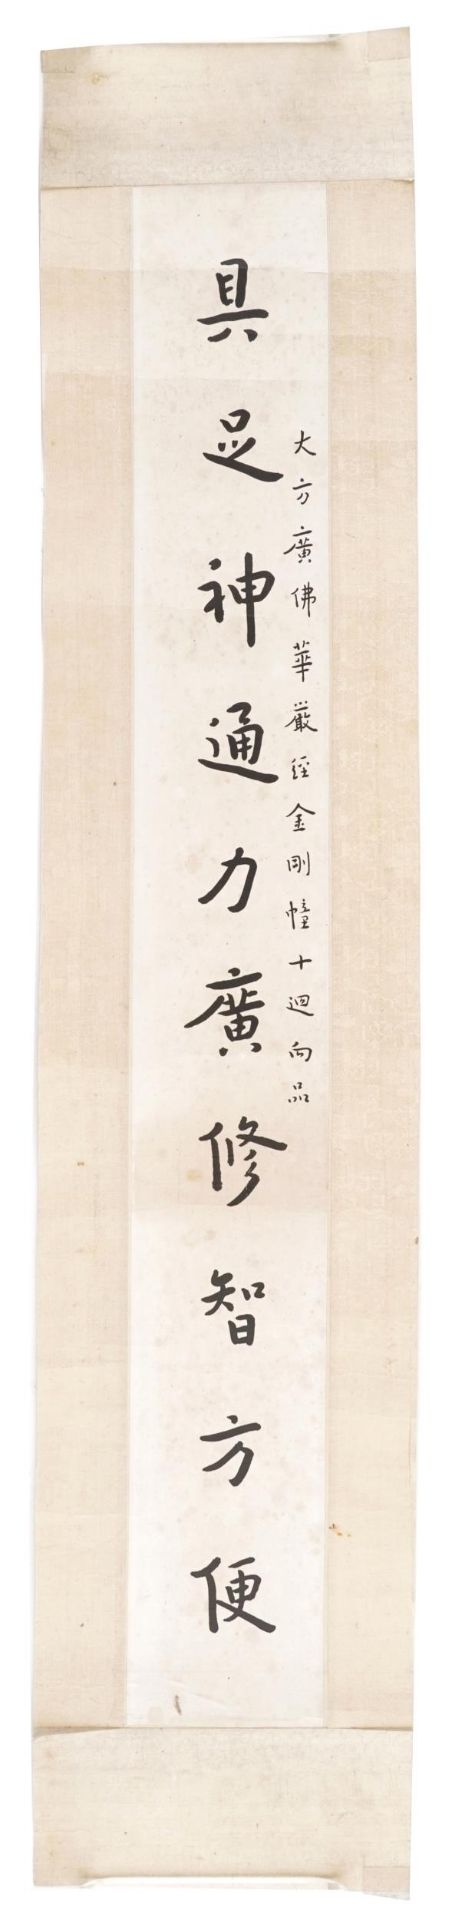 大方廣佛華嚴經金剛幢十迴向品
具足神通力廣修智方便